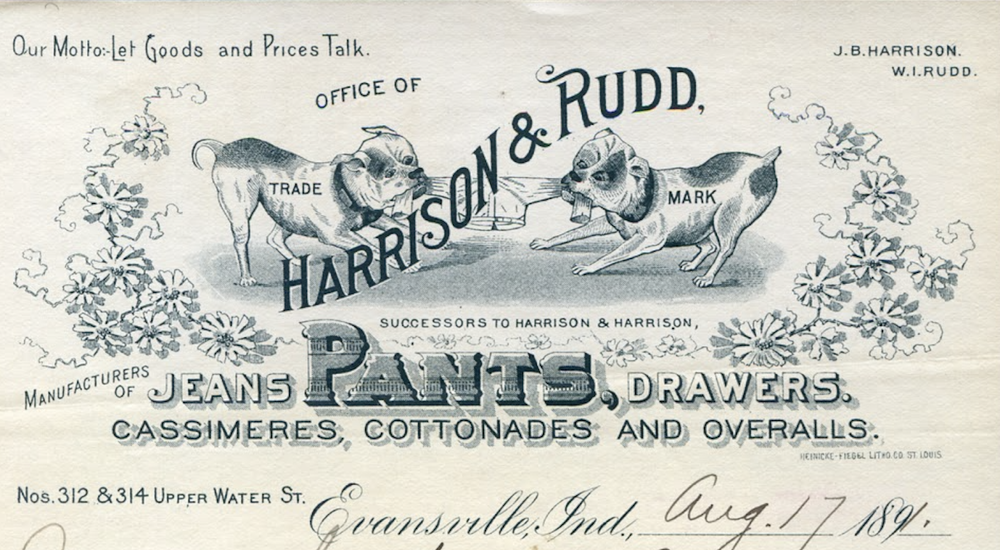 Our Motto:-Let Goods and Prices Talk.
J.B.HARRISON.
W.I.RUDD.
OFFICE OF
HARRISON & RUDD,
TRADE MARK
SUCCESSORS TO HARRISON & HARRISON,
MANUFACTURERS OF JEANS PANTS, DRAWERS.
CASSIMERES, COTTONADES AND OVERALLS.
HEINICKE-FIEGEL LITHO.CO. ST. LOUIS
Nos. 312 & 314 UPPER WATER ST. Evansville, Ind., Aug. 17 1891.